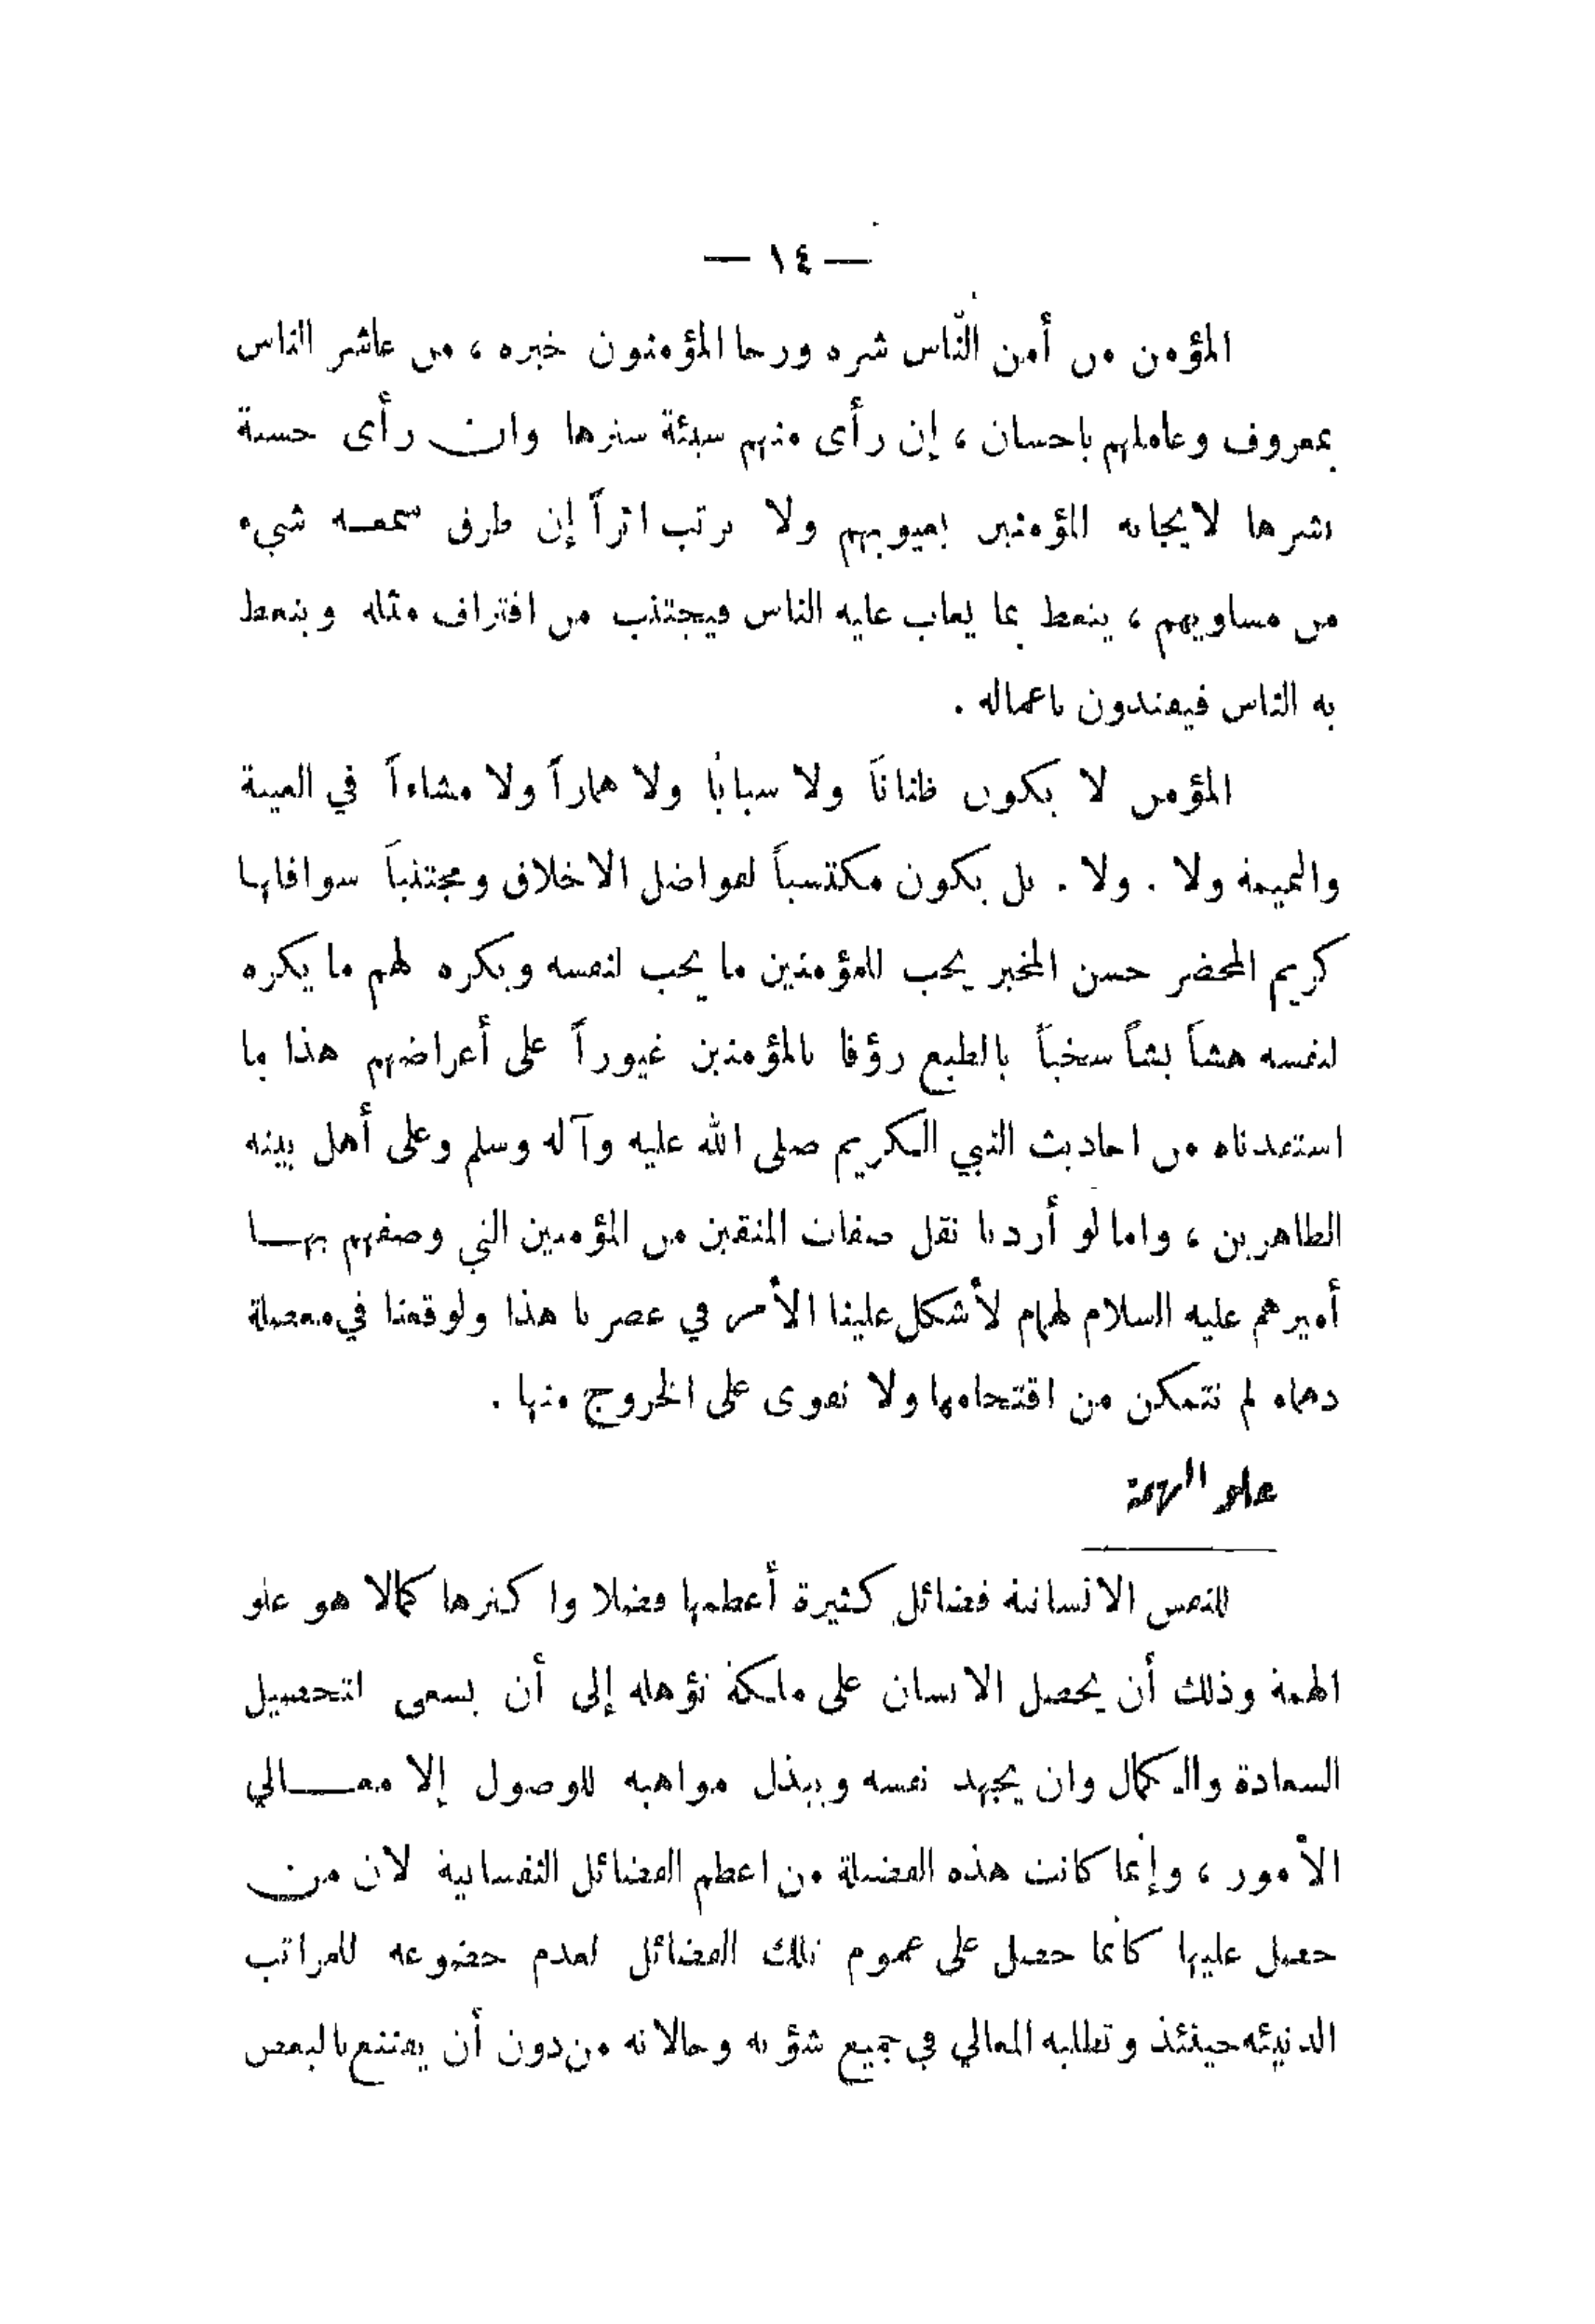 — ١٤ —
المؤمن من أمن النّاس شره ورجا المؤمنون خيره ، من عاشر الناس
بمعروف وعاملهم باحسان ، إن رأى منهم سيئة سترها وان رأى حسنة
نشرها لا يجابه المؤمنين بعيوبهم ولا يرتب اثراً إن طرق سمعه شيء
من مساويهم ، يتعظ بما يعاب عليه الناس فيجتنب من اقتراف مثله ويتعظ
به الناس فيقتدون باعماله .
المؤمن لا يكون ظناناً ولا سباباً ولا همازاً ولا مشاءاً في الغيبة
والنميمة ولا . ولا . بل يكون مكتسباً لفواضل الاخلاق ومجتنباً سوافلها
كريم المحضر حسن المخبر يحب للمؤمنين ما يحب لنفسه ويكره لهم ما يكره
لنفسه هشاً بشاً سخياً بالطبع رؤفا بالمؤمنين غيوراً على أعراضهم هذا ما
استفدناه من احاديث النبي الكريم صلى الله عليه وآله وسلم وعلى أهل بيته
الطاهرين ، واما لو أردنا نقل صفات المتقين من المؤمنين التي وصفهم بها
أميرهم عليه السلام لهمام لأشكل علينا الأمر في عصرنا هذا ولوقعنا في معضلة
دهماء لم نتمكن من اقتحامها ولا نقوى على الخروج منها .
علو الهمة
للنفس الانسانية فضائل كثيرة أعظمها فضلا واكثرها كمالا هو علو
الهمة وذلك أن يحصل الانسان على ملكة تؤهله إلى أن يسعى لتحصيل
السعادة والكمال وان يجهد نفسه ويبذل مواهبه للوصول إلا معالي
الأمور ، وإنما كانت هذه الفضيلة من اعظم الفضائل النفسانية لان من
حصل عليها كأنما حصل على عموم تلك الفضائل لعدم خضوعه للمراتب
الدنيئه حينئذ وتطلبه المعالي في جميع شؤنه وحالاته من دون أن يقتنع بالبعض